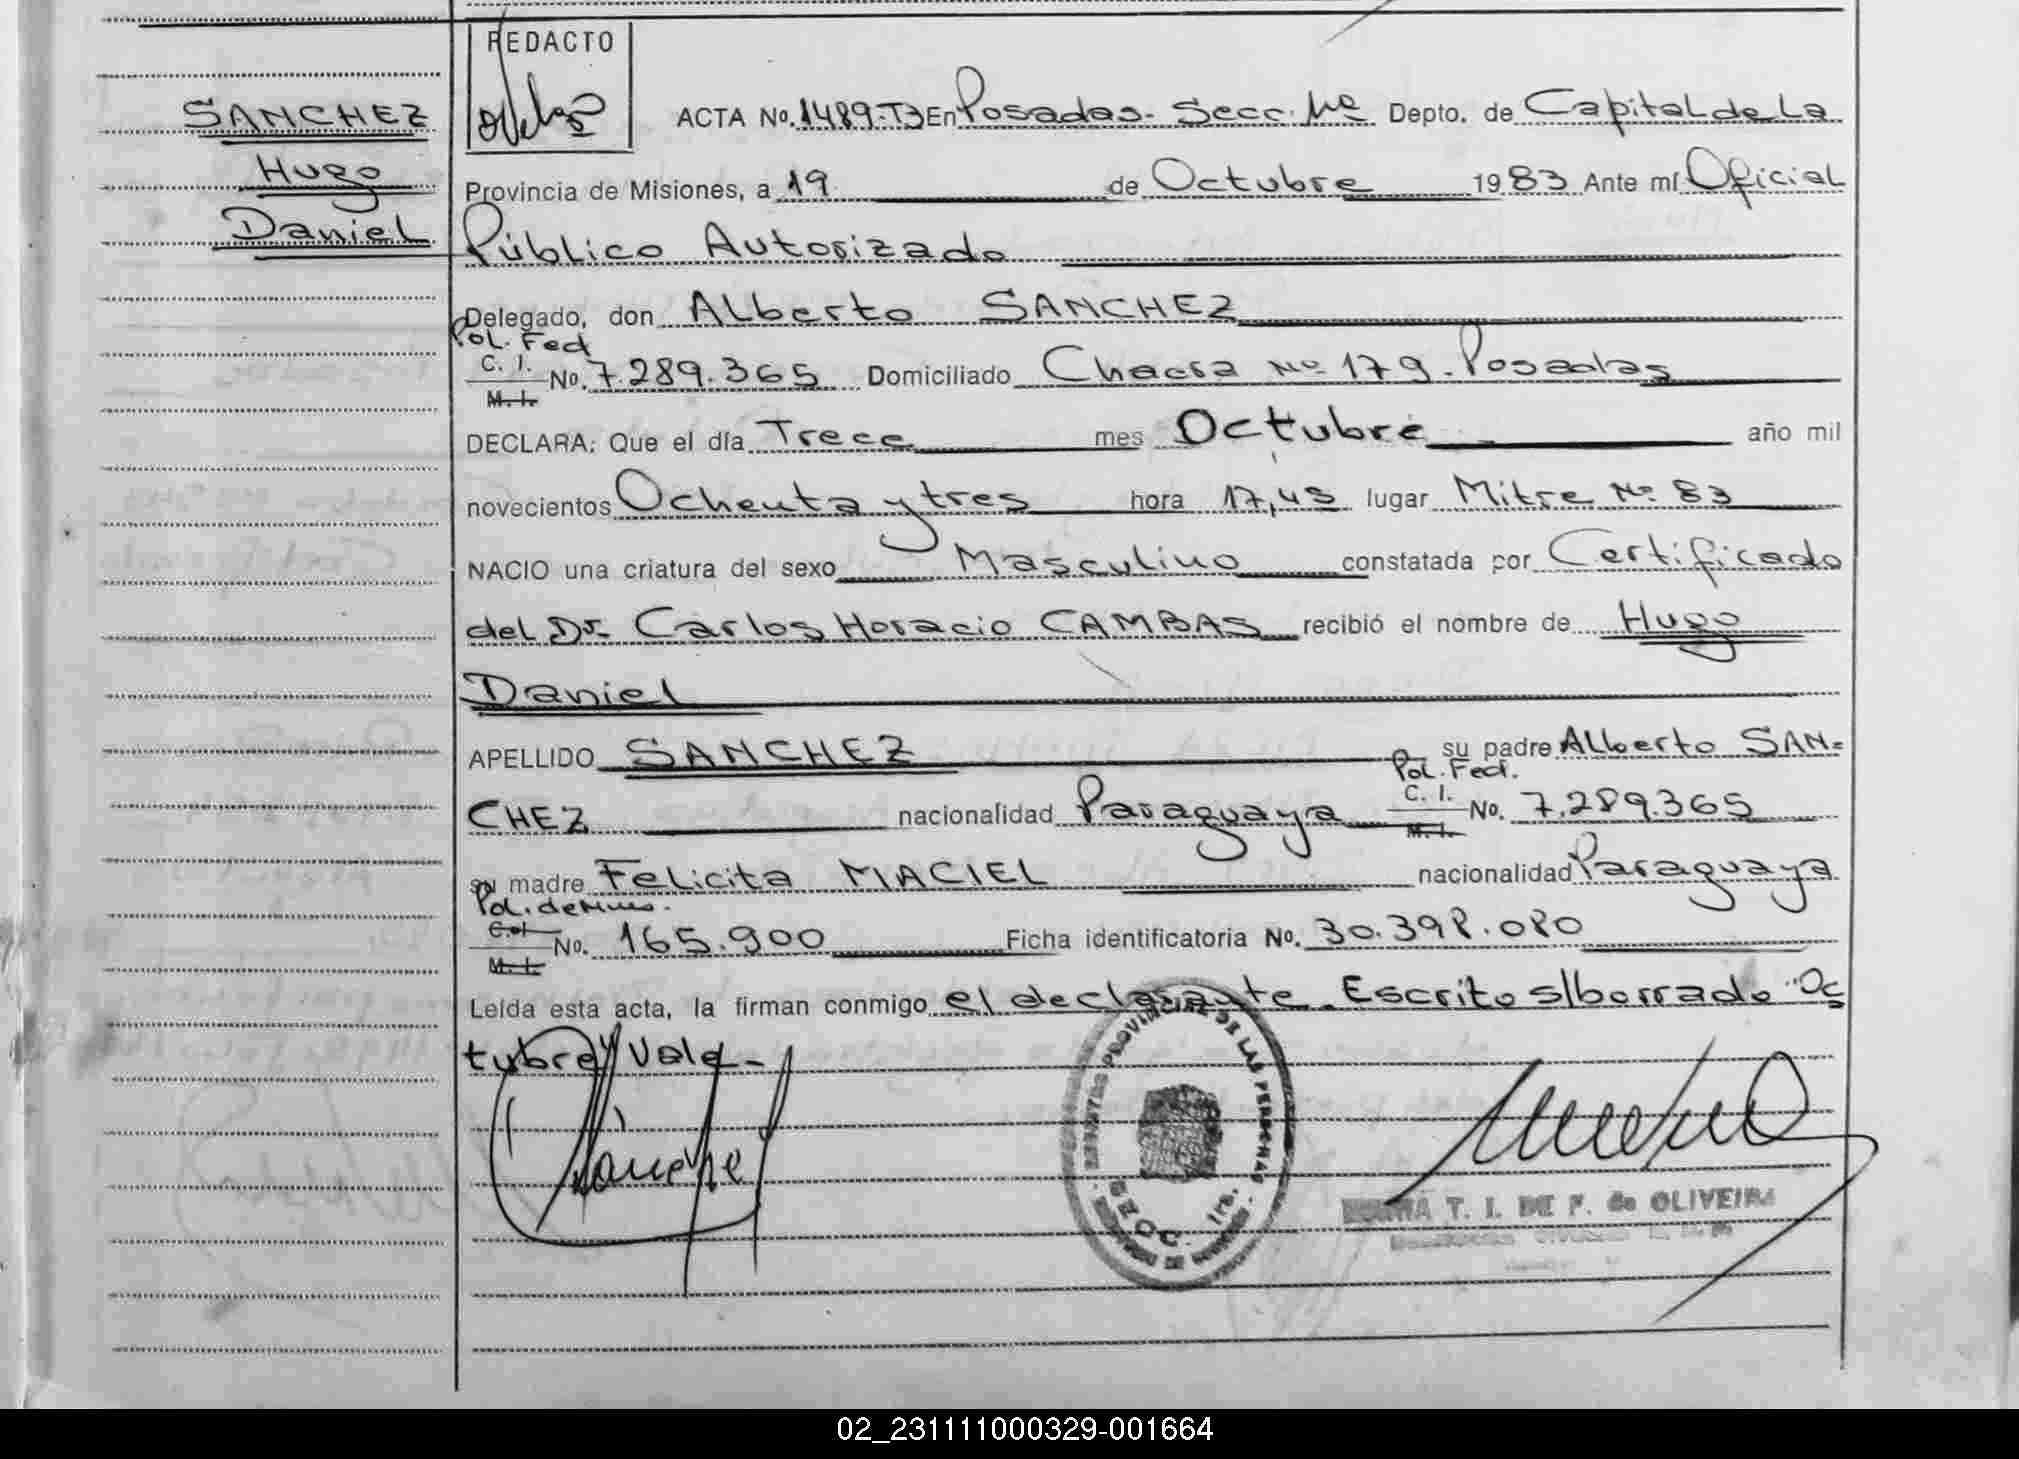 REDACTO
SANCHEZ
Hugo
Daniel
ACTA No. 1489-T3 En Posadas- Secc. 1ra Depto. de Capital de La
Provincia de Misiones, a 19 de Octubre 1983 Ante mí Oficial
Público Autorizado
Delegado, don Alberto SANCHEZ
Pol. Fed
C. I. No. 7.289.365 Domiciliado Chacra No 179. Posadas
M. I.
DECLARA: Que el día Trece mes Octubre año mil
novecientos Ochenta y tres hora 17,45 lugar Mitre No. 83
NACIO una criatura del sexo Masculino constatada por Certificado
del Dr. Carlos Horacio CAMBAS recibió el nombre de Hugo
Daniel
APELLIDO SANCHEZ su padre Alberto SAN=
Pol. Fed.
CHEZ nacionalidad Paraguaya C. I. No. 7.289.365
M. I.
su madre Felicita MACIEL nacionalidad Paraguaya
Pol. de Mnes.
C. I. No. 165.900 Ficha identificatoria No. 30.398.080
M. I.
Leída esta acta, la firman conmigo el declarante. Escrito s/borrado "Oc
tubre" Vale-
PROVINCIAL DE LAS PERSONAS
SECC. 1ra.
T. I. DE F. de OLIVEIRA
02_231111000329-001664